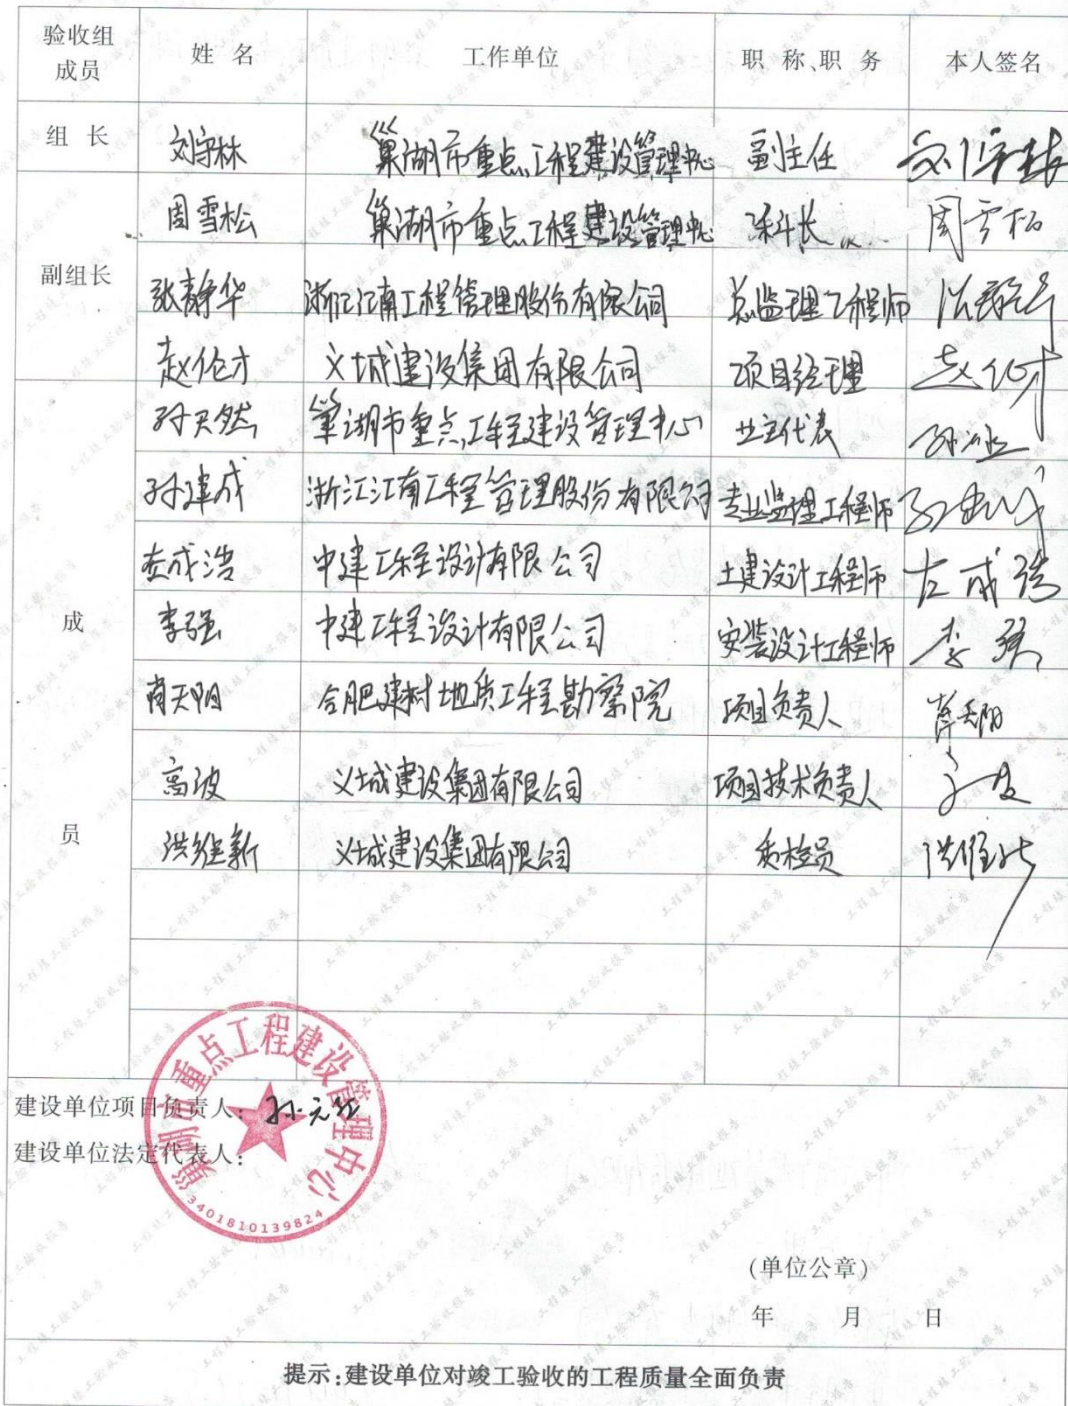 验收组成员 姓 名 工作单位 职 称、职 务 本人签名
组 长 刘守林 巢湖市重点工程建设管理中心 副主任 刘守林
周雪松 巢湖市重点工程建设管理中心 科长 周雪松
副组长 张静华 浙江江南工程管理股份有限公司 总监理工程师
赵伦才 义城建设集团有限公司 项目经理 赵伦才
孙天然 巢湖市重点工程建设管理中心 业主代表
孙建成 浙江江南工程管理股份有限公司 专业监理工程师 孙建成
左成浩 中建工程设计有限公司 土建设计工程师 左成浩
成 李强 中建工程设计有限公司 安装设计工程师 李强
肖天阳 合肥建材地质工程勘察院 项目负责人 肖天阳
高波 义城建设集团有限公司 项目技术负责人 高波
员 洪维新 义城建设集团有限公司 质检员 洪维新
建设单位项目负责人:
建设单位法定代表人:
巢湖市重点工程建设管理中心
3401810139824
(单位公章)
年 月 日
提示:建设单位对竣工验收的工程质量全面负责